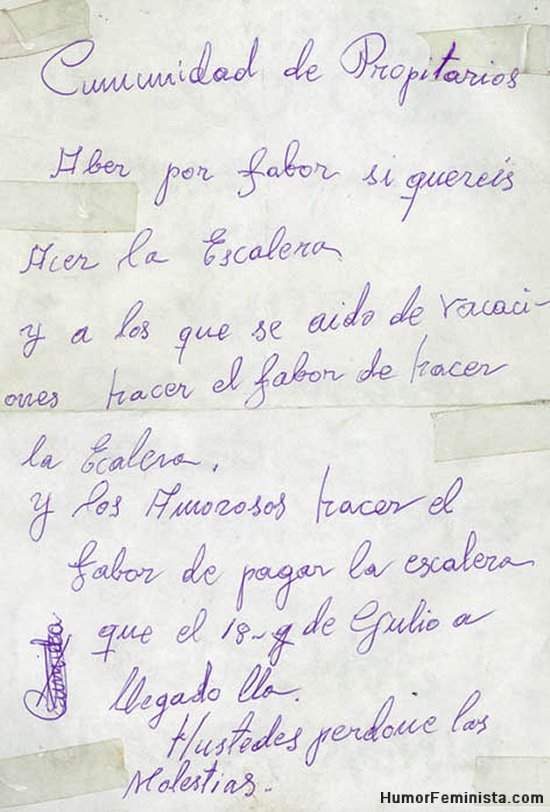 Cumunidad de Propitarios
Aber por fabor si quereis
Acer la Escalera
y a los que se aido de vacaci-
ones hacer el fabor de hacer
la Ecalera.
y los Amorosos hacer el
fabor de pagar la escalera
que el 18 de Gulio a
llegado lla.
Hustedes perdone las
Molestias.
HumorFeminista.com